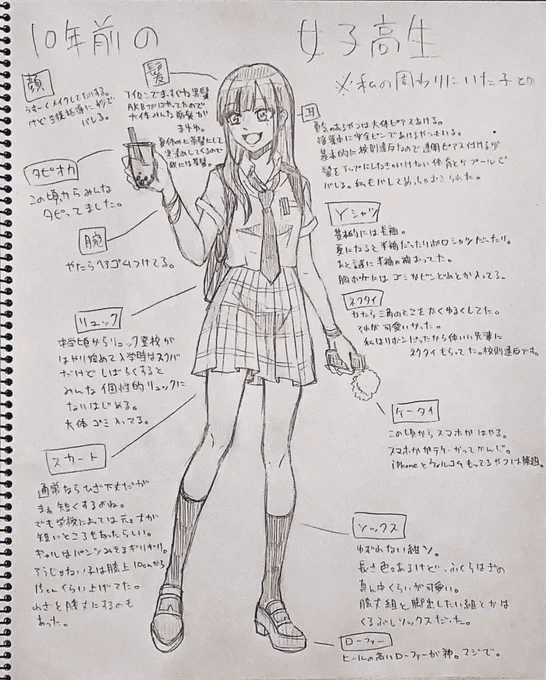 10年前の
女子高生
※私の周りにいた子とか
顔
うすーくメイクしてたりする。
けど生徒指導に秒で
バレる。
髪
アイロンでまっすぐね黒髪
AKBがはやってたので
大体みんな前髪が
ある。
夏休みに茶髪にして
タピオカ
この頃からみんな
タピってました。
腕
やたらヘアゴムつけてる。
リュック
中学頃からリュック登校が
はやり始めて入学時はスクバ
だけどしばらくすると
みんな個性的リュックに
なりはじめる。
大体ゴミ入ってる。
スカート
通常ならひざ下丈だが
まぁ短くするよね。
でも学校によっては元々丈が
短いところもあったらしい。
ギャルはパンツみえるギリギリ。
そうじゃない子は膝上10cmから
15cmくらい上げてた。
わざと膝丈にするのも
あった。
耳
勇気のあるポンは大体ピアスあける。
授業中に安全ピンであけるポンもいる。
基本的に校則違反なので透明ピアス付けるが
髪をアップにしなきゃいけない体育とかプールで
バレる。私もバレてめっちゃおこられた。
Yシャツ
基本的には長袖。
夏になると半袖だったりポロシャツだったり。
あと謎に半端の袖おってた。
胸ポケにはゴミかピンどめとか入ってる。
ネクタイ
やたら三角のとこを太くゆるくしてた。
それが可愛いかった。
私はリボンだったから仲いい先輩に
ネクタイもらってた。校則違反です。
ケータイ
この頃からスマホがはやる。
スマホかガラケーかってかんじ。
iPhoneとウィルコムもってるやつは勝組。
ソックス
ゆずれない紺ソ。
長さ色々あるけど、ふくらはぎの
真ん中くらいが可愛い。
膝丈組と脚出したい組とかは
くるぶしソックスだった。
ローファー
ヒールの高いローファーが神。マジで。